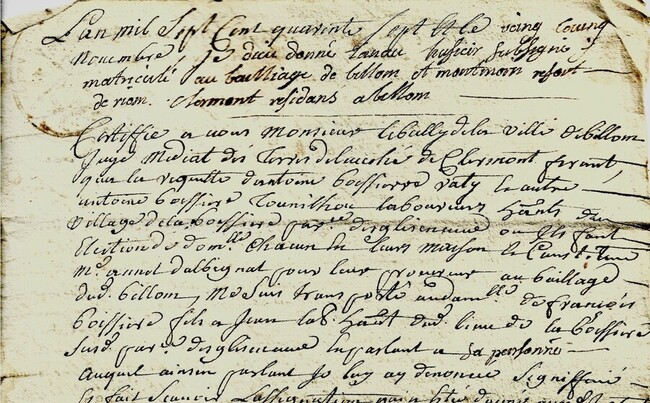 L'an mil Sept Cent quarante Sept Et le vingt
Novembre, Je dieu donné landu huissier Subsigné
matriculé au bailliage de billom et montmorin resort
de riom. Clermont residans a billom
Certiffie a vous Monsieur le bally de la ville de billom
Juge des Terres de Clermont
que la requette d'antoine boissierre Paty le autre
antoine boissiere Tounilhou laboureurs hants du
Village de la boissiere par.sse d'esgliseneuve ou ils font
Election de dom.lle Chacun En leurs maison Et Constituent
M.e annet dalbignat pour leur procureur au bailliage
dud. billom, Me Suis transporté au dom.lle de françois
boissiere fils a Jean lab.r hant dud. lieu de la boissiere
Susd. par.sse d'esgliseneuve En parlant a sa personne
auquel ainsin parlant Je luy ay denoncé Signiffié
Et fait scavoir L'assignation